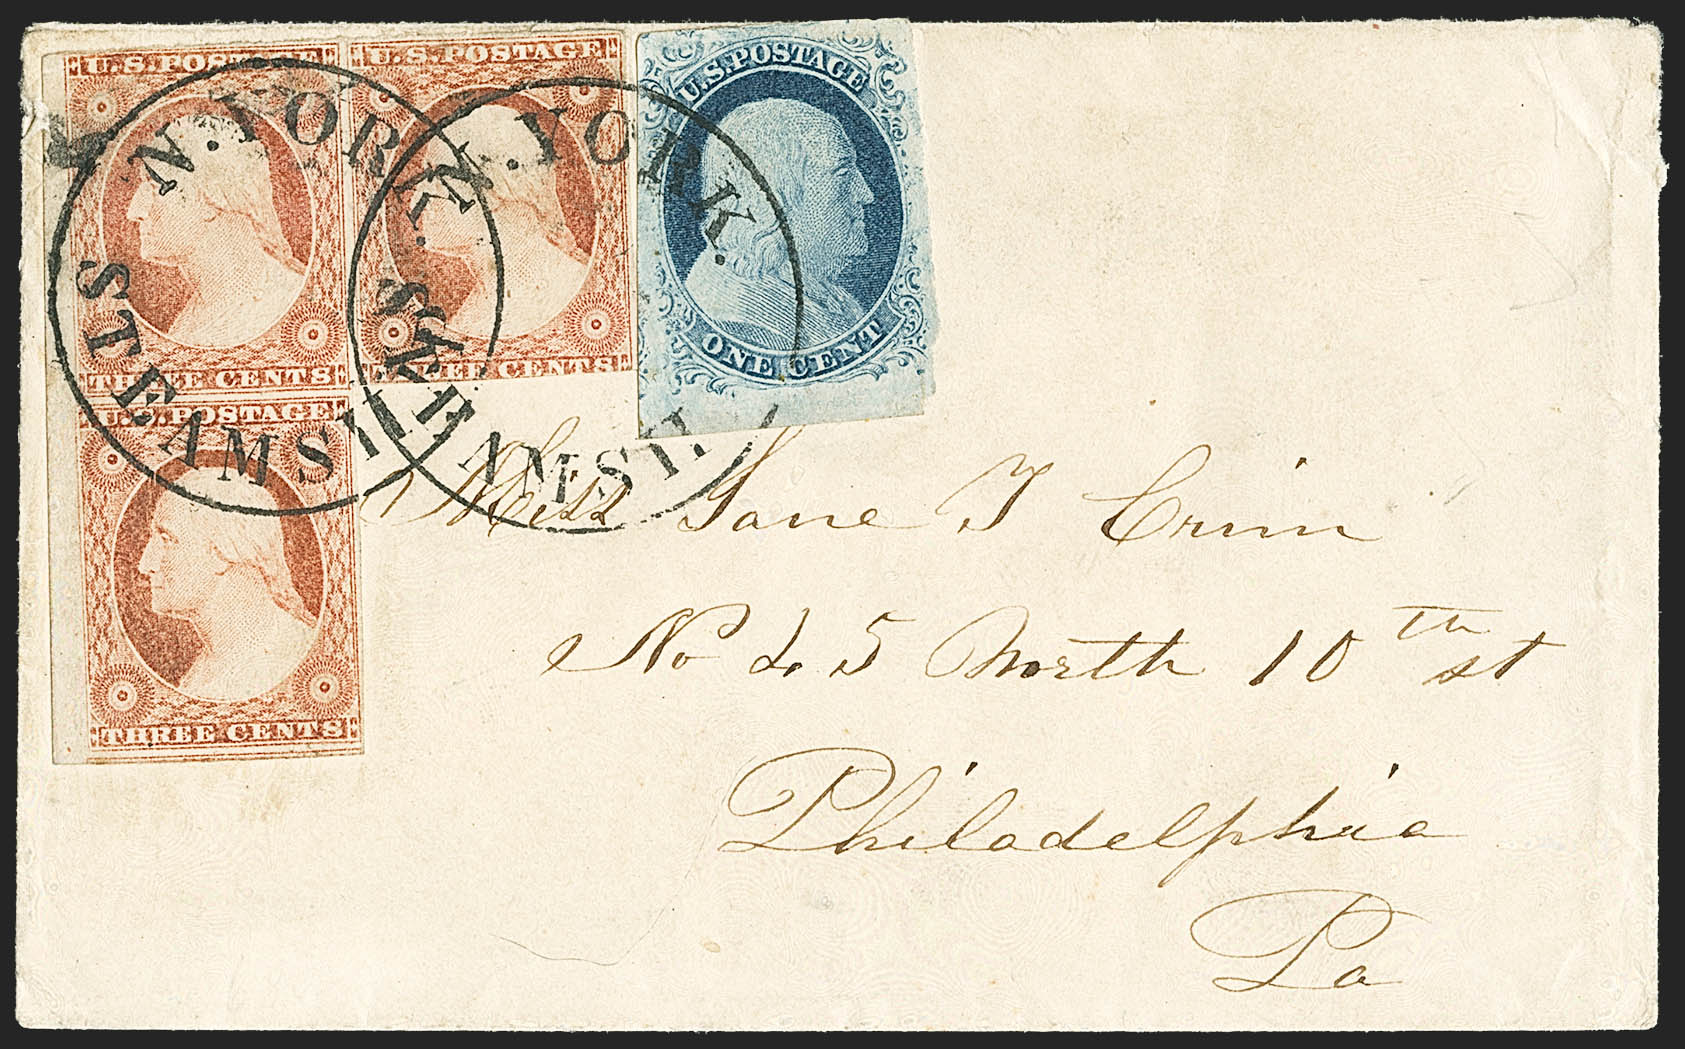 U.S. POSTAGE
THREE CENTS
U.S. POSTAGE
THREE CENTS
U.S. POSTAGE
THREE CENTS
U.S. POSTAGE
ONE CENT
N. YORK.
STEAMSHIP
N. YORK.
STEAMSHIP
Miss Jane T Crim
No 45 North 10th st
Philadelphia
Pa